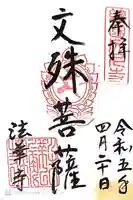 奉拝
文殊菩薩
法華寺
令和五年
四月二十日